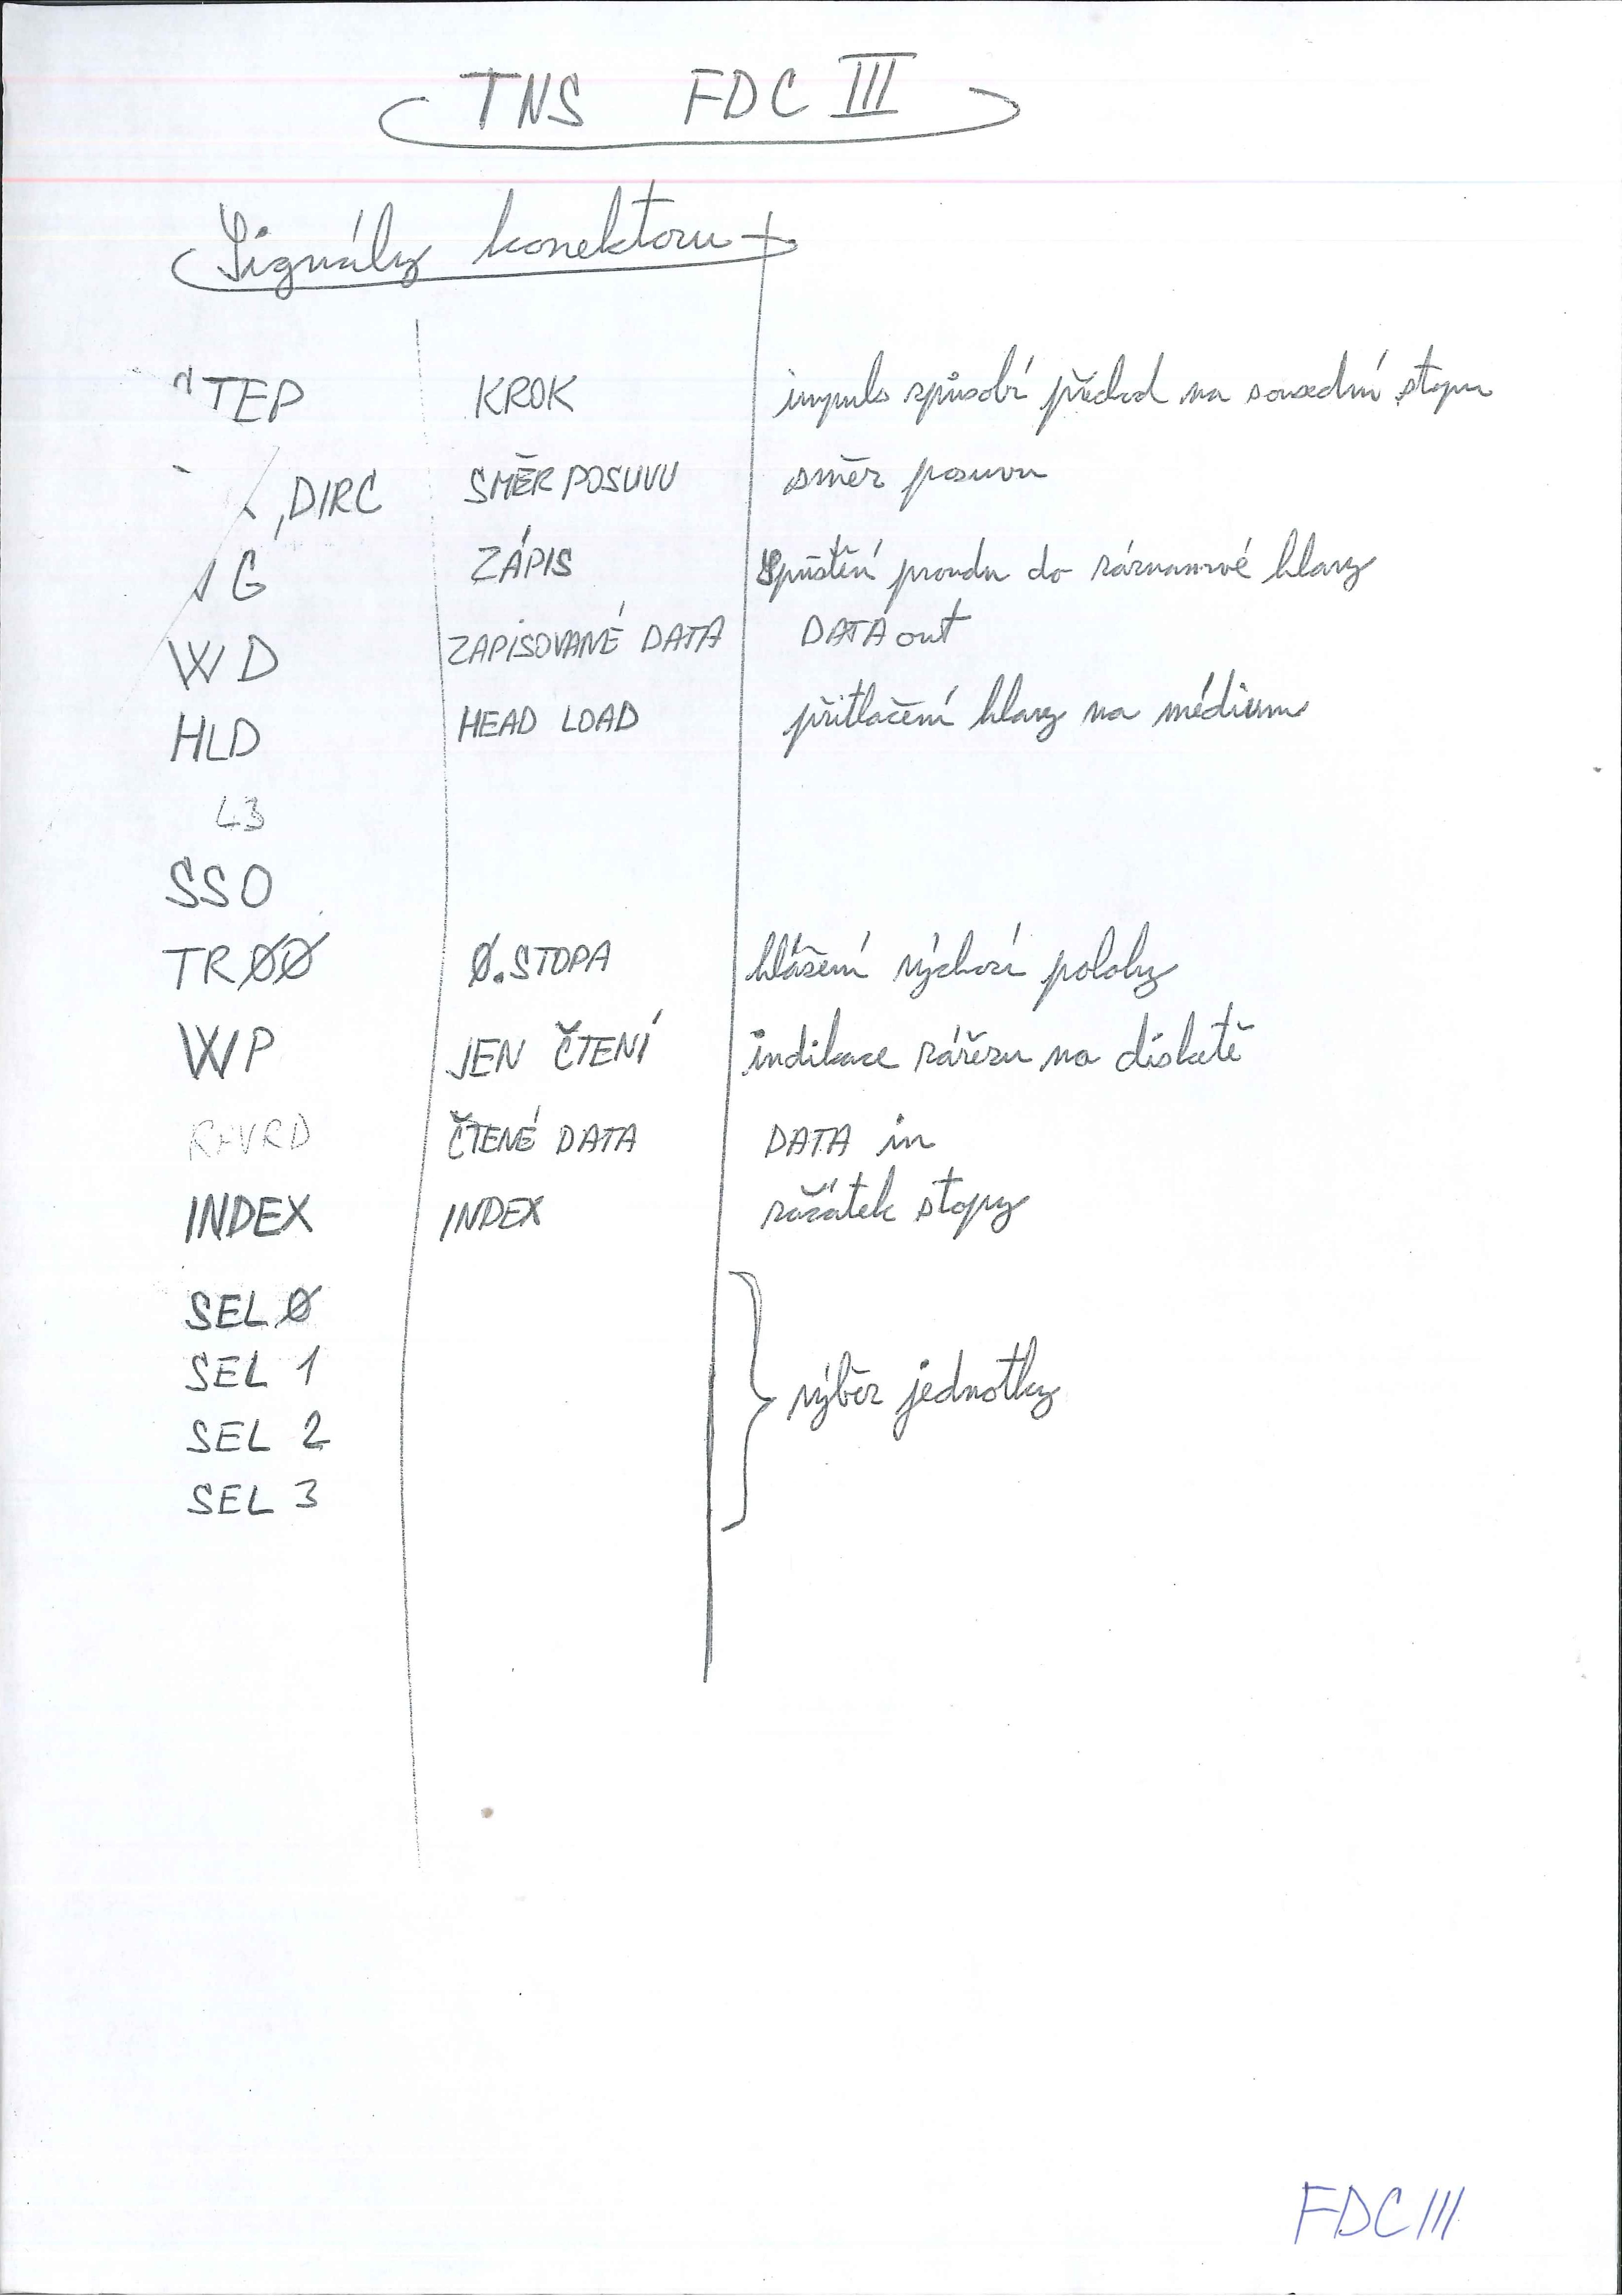 TNS FDC III
Signály konektoru
TEP KROK impuls způsobí přechod na sousední stopu
DIRC SMĚR POSUVU směr posuvu
G ZÁPIS Spuštění proudu do záznamové hlavy
WD ZAPISOVANÉ DATA DATA out
HLD HEAD LOAD přitlačení hlavy na médium
L3
SSO
TRØØ Ø.STOPA hlášení výchozí polohy
WP JEN ČTENÍ indikace zářezu na disketě
ČTENÉ DATA DATA in
INDEX INDEX začátek stopy
SEL Ø
SEL 1
výběr jednotky
SEL 2
SEL 3
FDC III